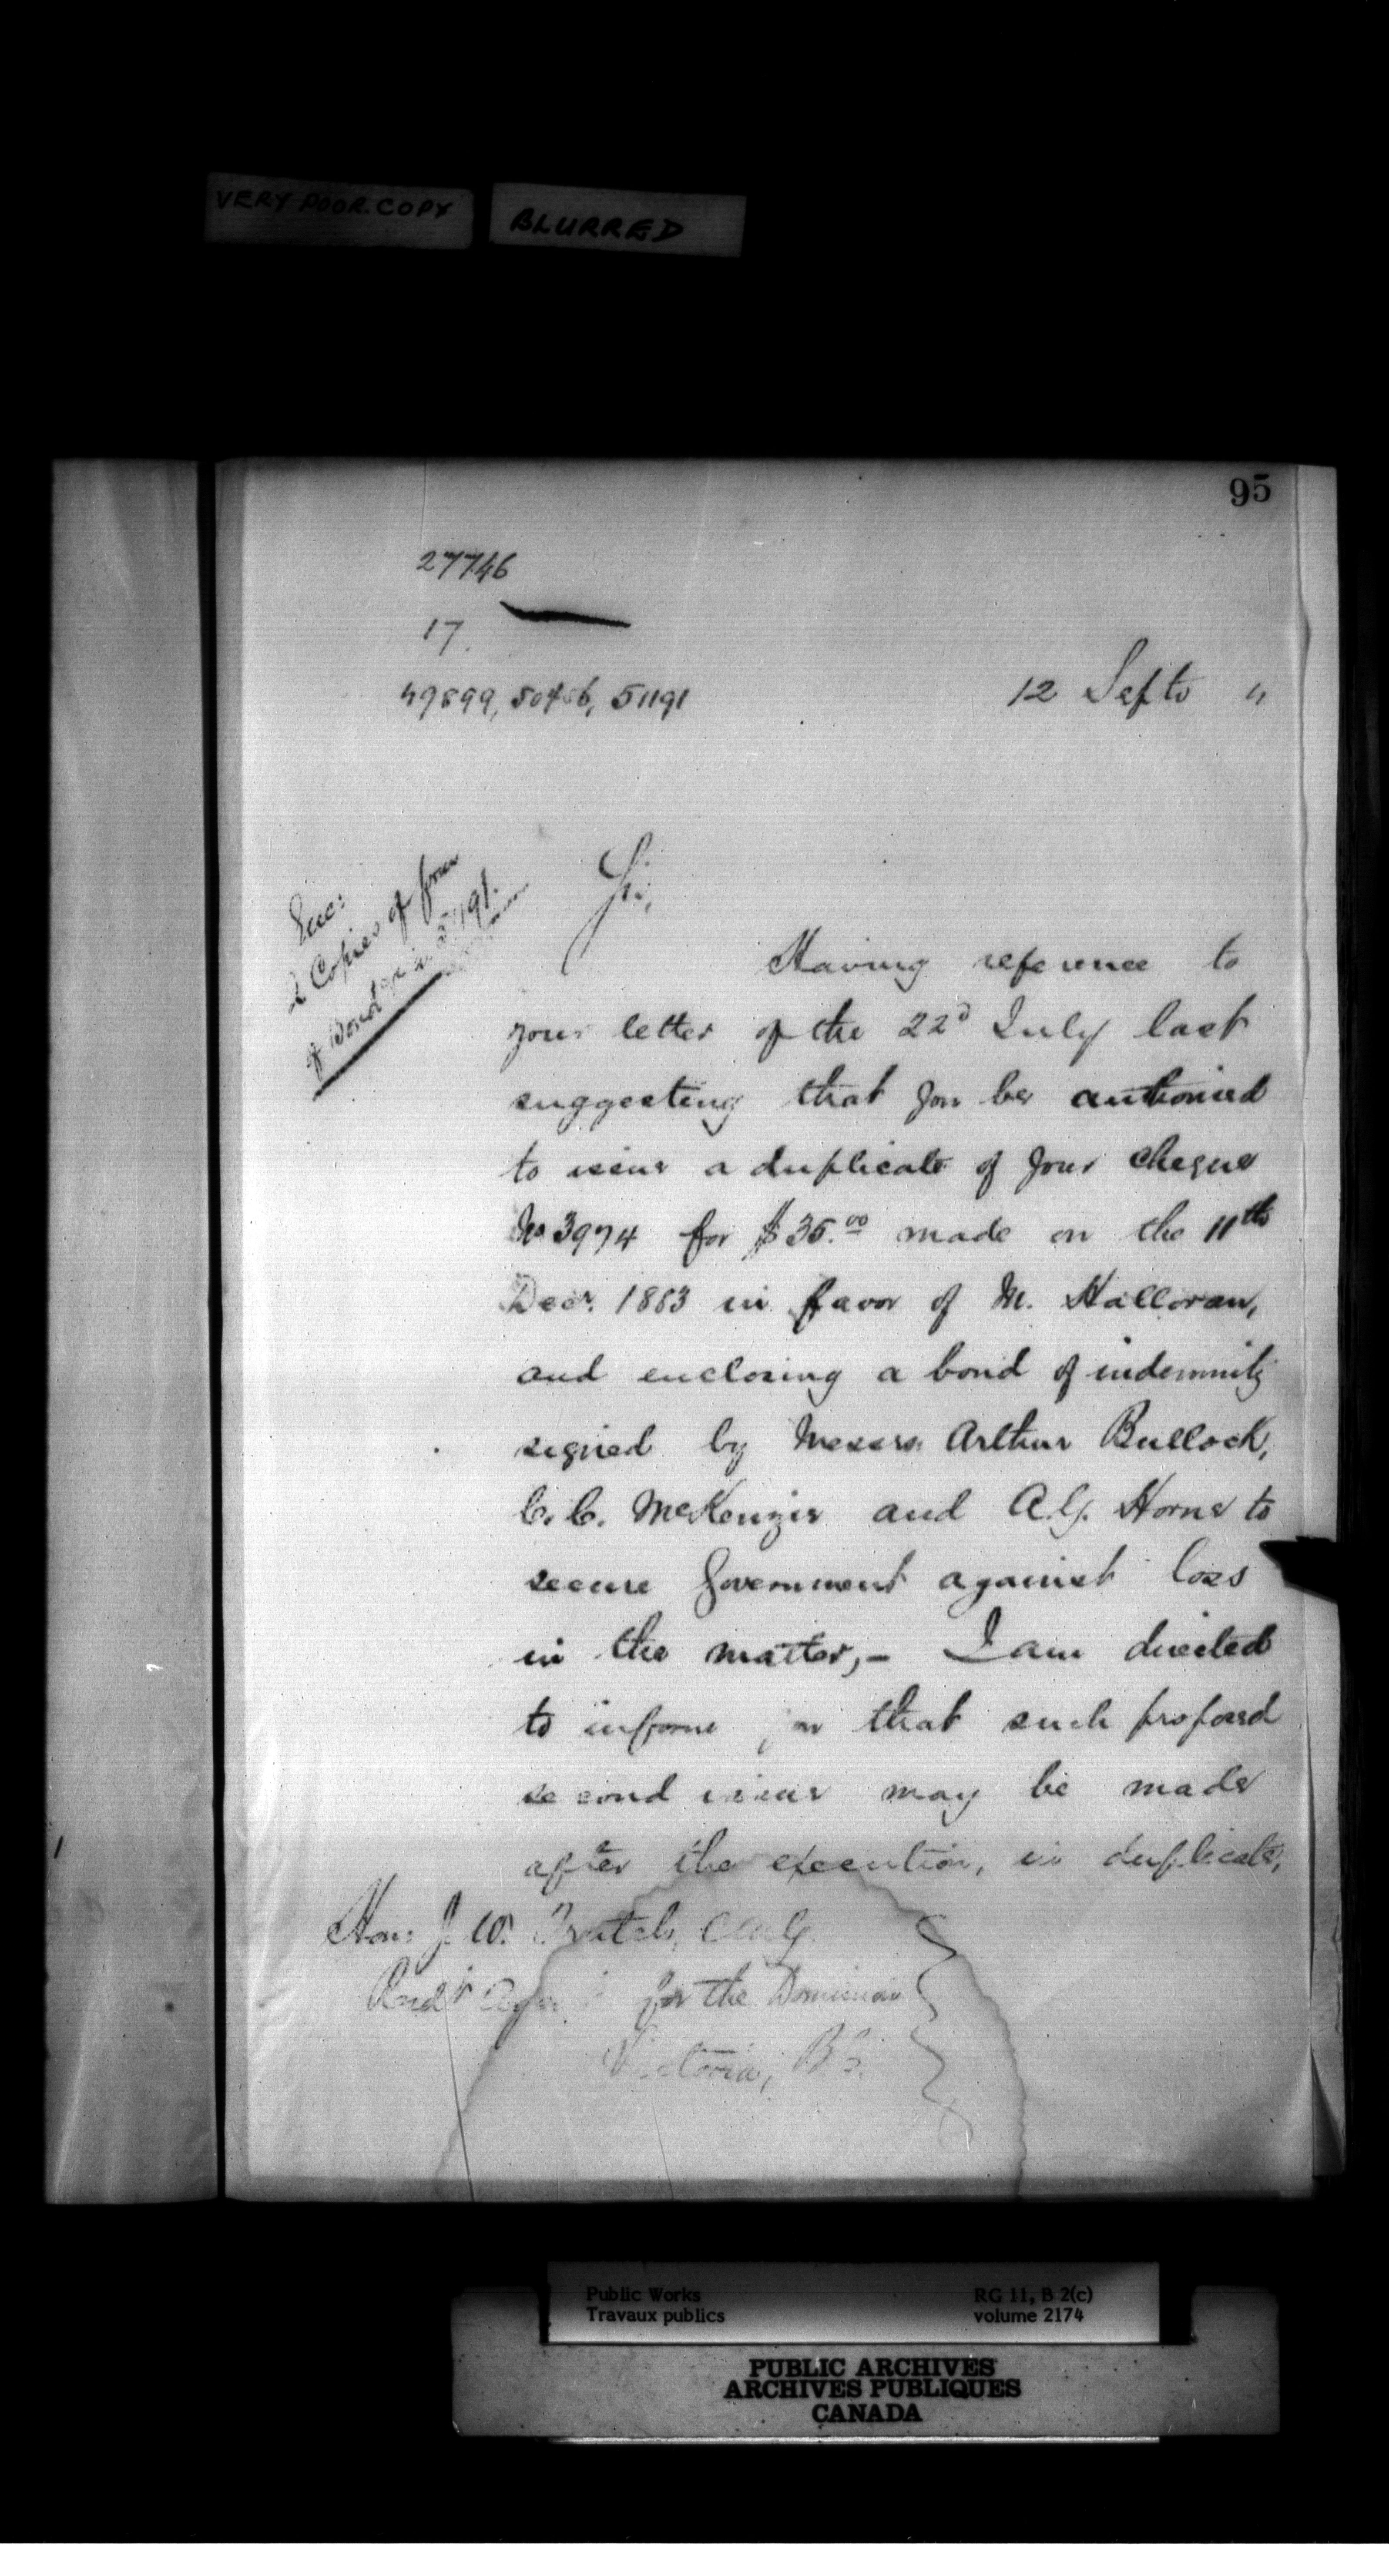 VERY POOR COPY BLURRED
95
27746
17.
49899, 50456, 51191
12 Septr "
Enc:
2 Copies of form
of Bond 51191.
Sir,
Having reference to
your letter of the 22d July last
suggesting that you be authorised
to issue a duplicate of your cheque
No 3974 for $35.00 made on the 11th
Decr. 1883 in favor of M. Halloran,
and enclosing a bond of indemnity
signed by Messrs. Arthur Bullock,
C. C. McKenzie and A. G. Horne to
secure Government against loss
in the matter,- I am directed
to inform you that such proposed
second issue may be made
after the execution, in duplicate,
Hon: J. W. Trutch, CMG.
for the Dominion
Victoria, B.C.
Public Works
Travaux publics
RG 11, B 2(c)
volume 2174
PUBLIC ARCHIVES
ARCHIVES PUBLIQUES
CANADA